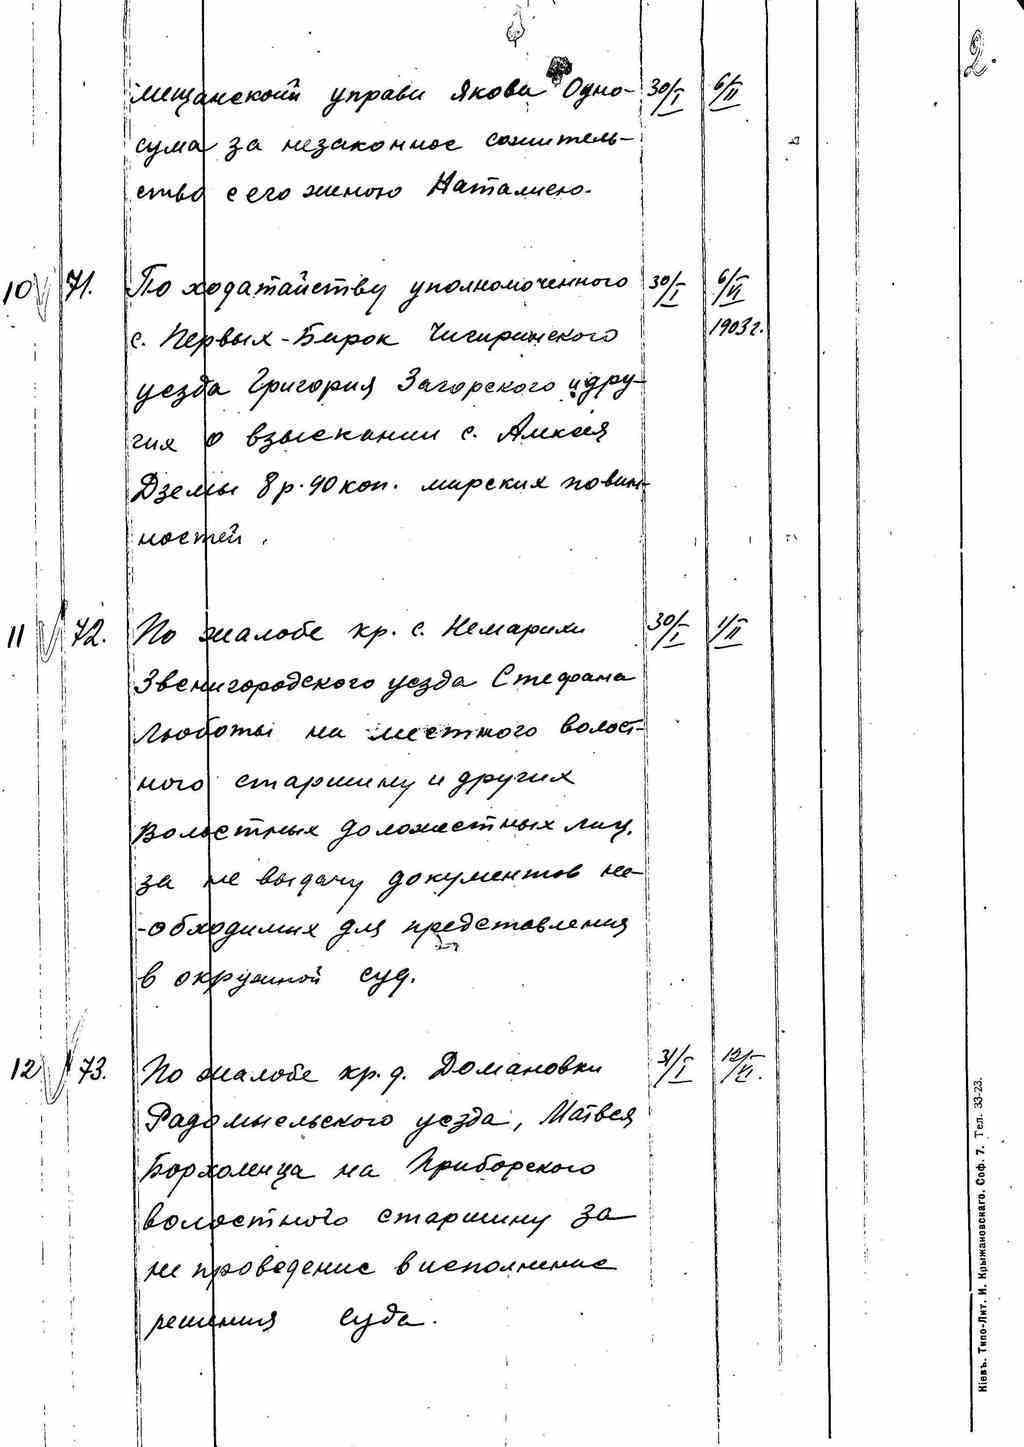 2.
мещанской управи Якова Одно- 30/I 6/II
сума за незаконное сожитель-
ство с его женою Наталиею.
10 71. По ходатайству уполномоченного 30/I 6/VI
с. Первых-Бирок Чигиринского 1903 г.
уезда Григория Загорского и дру-
гия о взыскании с. Алкея
Дземы 8 р. 90 коп. мирских повин-
ностей.
11 72. По жалобе кр. с. Немарихи 30/I 1/II
Звенигородского уезда Стефана
Люботы на местного волост-
ного старшину и других
Волостных должестных лиц,
за не выдачу документов не-
-обходимих для представления
в окружной суд.
12 73. По жалобе кр. д. Домановки 31/I 12/VI.
Радомысельского уезда, Матвея
Борхоленца на Приборского
волостного старшину за
не проведение в исполнение
решения суда.
Кіевъ. Типо-Лит. И. Крыжановскаго. Соф. 7. Тел. 33-23.